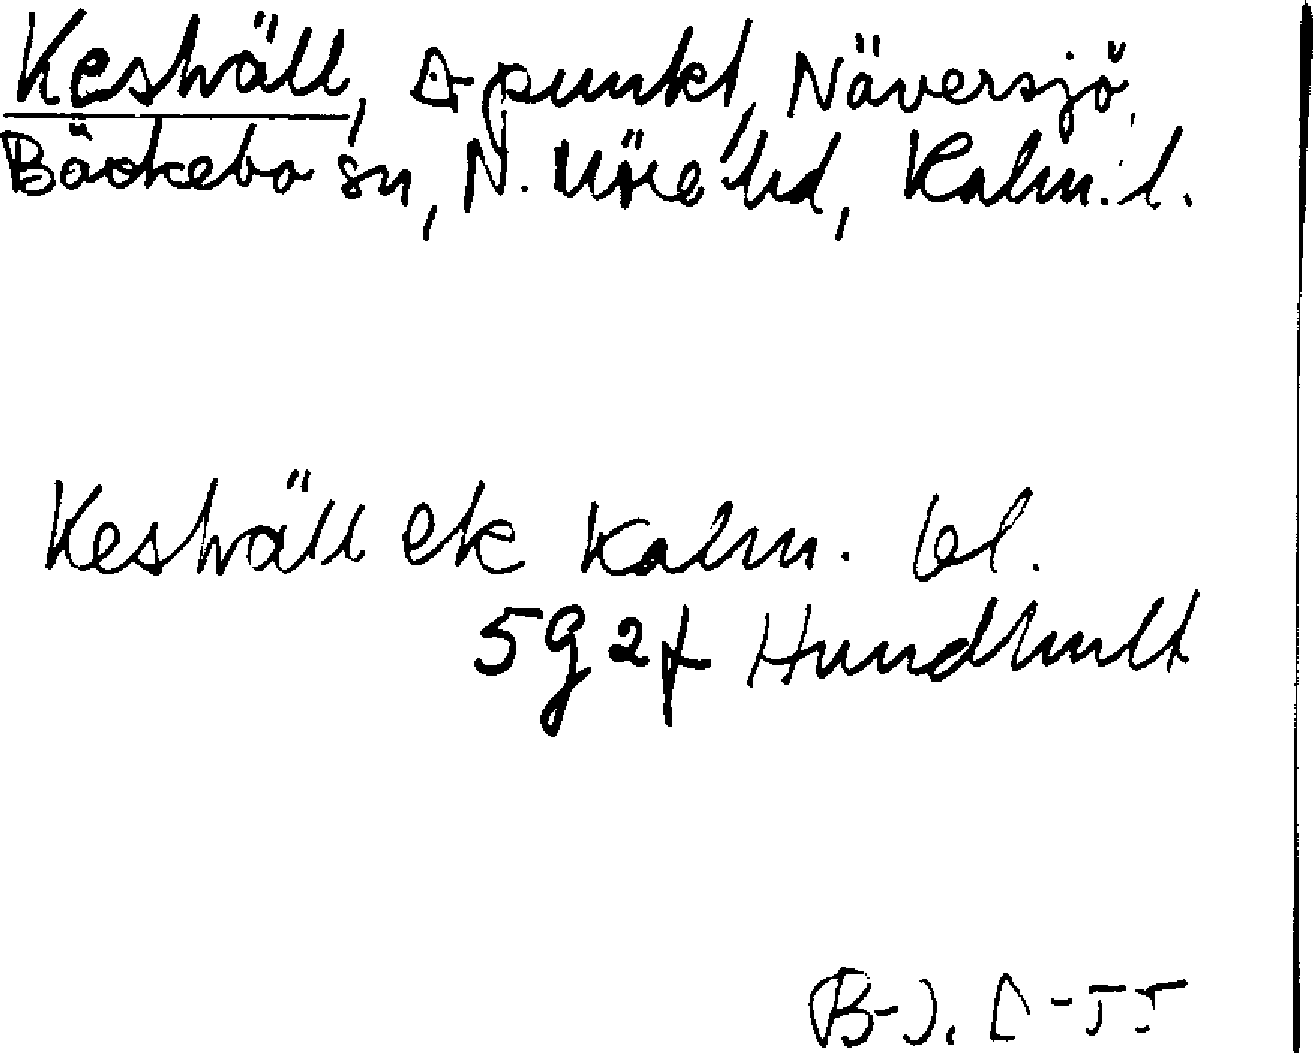 Keshväll, △-punkt, Näversjö,
Bäckebo sn, N. Möre hd, Kalm. l.
Keshväll ek Kalm. bl.
5g2f Hundhult